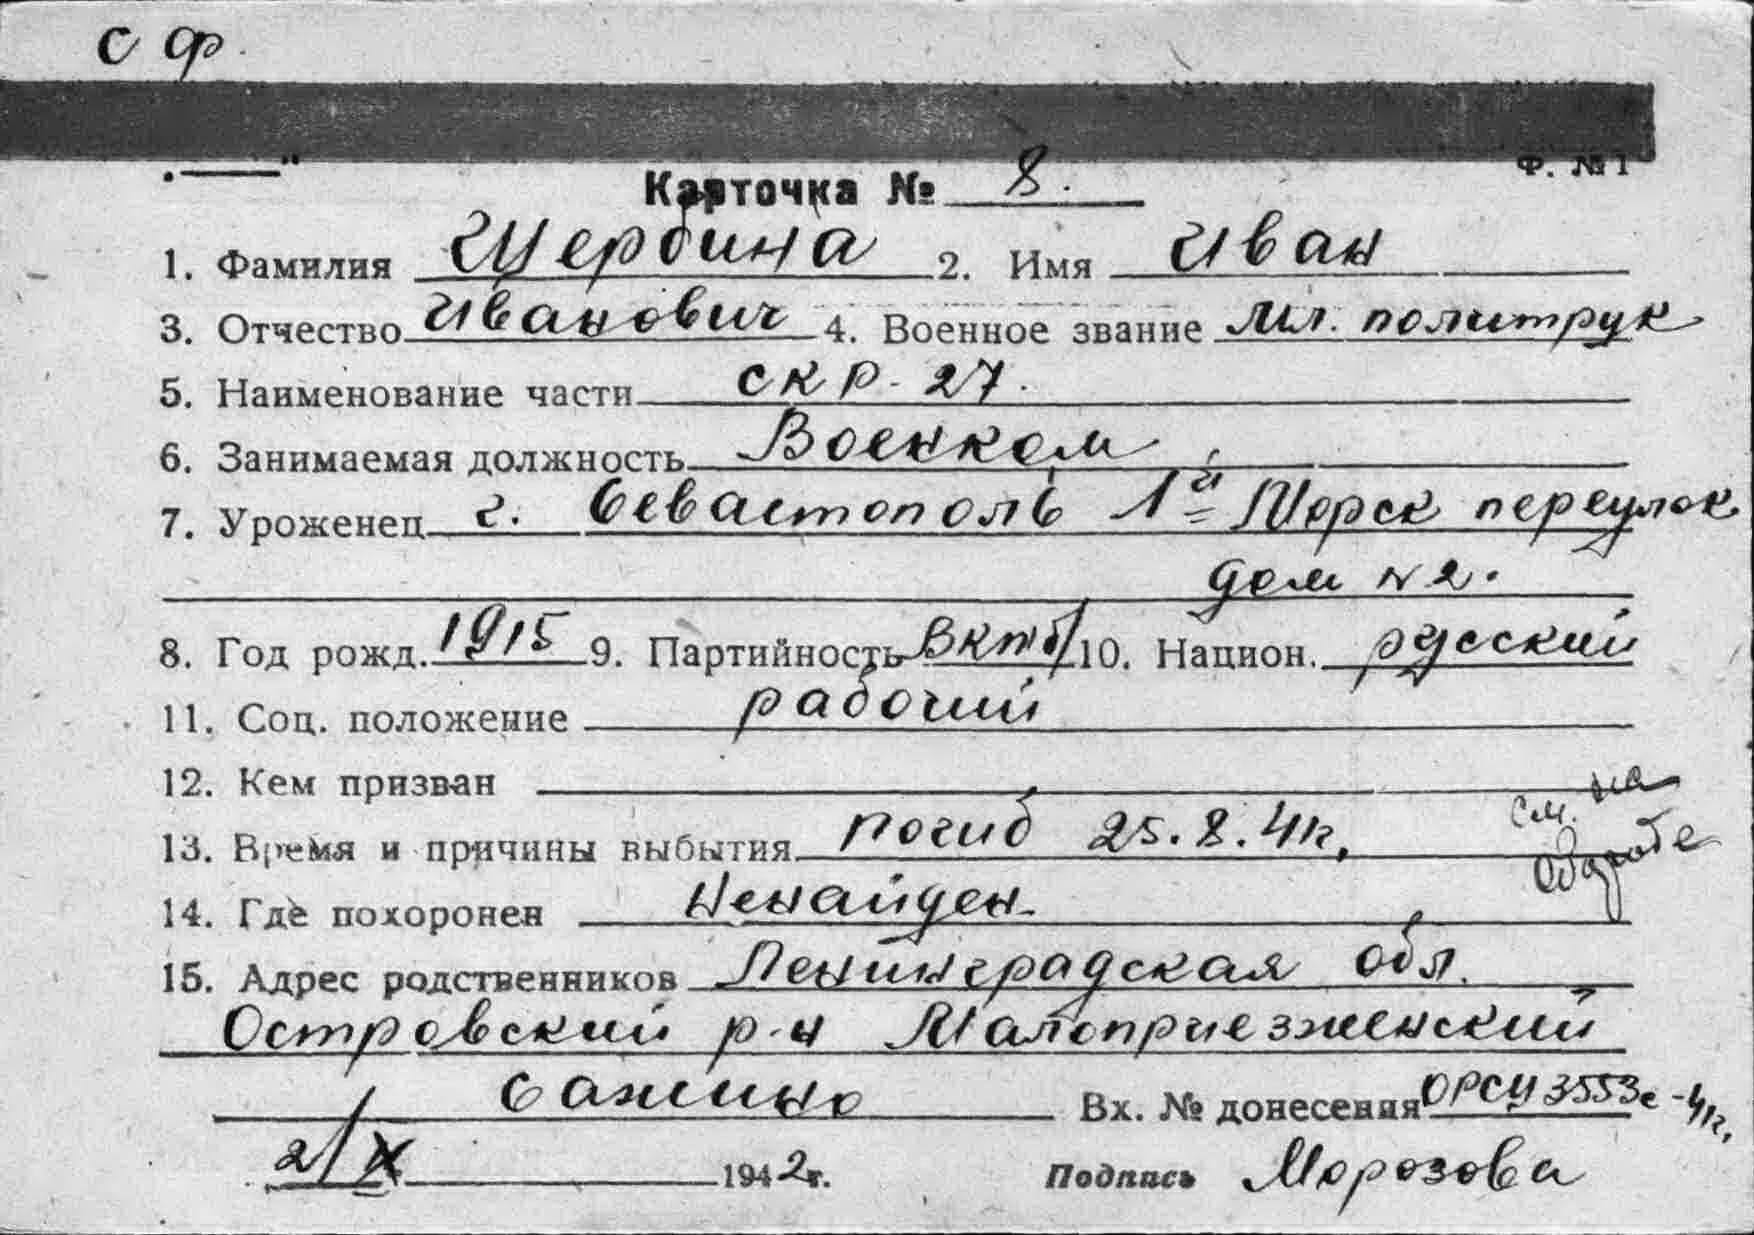 с ф.
Ф. № 1
Карточка № 8.
1. Фамилия Щербина 2. Имя Иван
3. Отчество Иванович 4. Военное звание мл. политрук
5. Наименование части СКР-27.
6. Занимаемая должность Военком
7. Уроженец г. Севастополь 1й Морск переулок
дом № 2.
8. Год рожд. 1915 9. Партийность ВКПб/ 10. Национ. русский
11. Соц. положение рабочий
12. Кем призван
13. Время и причины выбытия погиб 25.8.41г. см. на обороте
14. Где похоронен Ненайден
15. Адрес родственников Ленинградская обл.
Островский р-н Малоприезженский
Сажино Вх. № донесения ОРСУ 3553с-41г.
2/X 1942г. Подпись Морозова